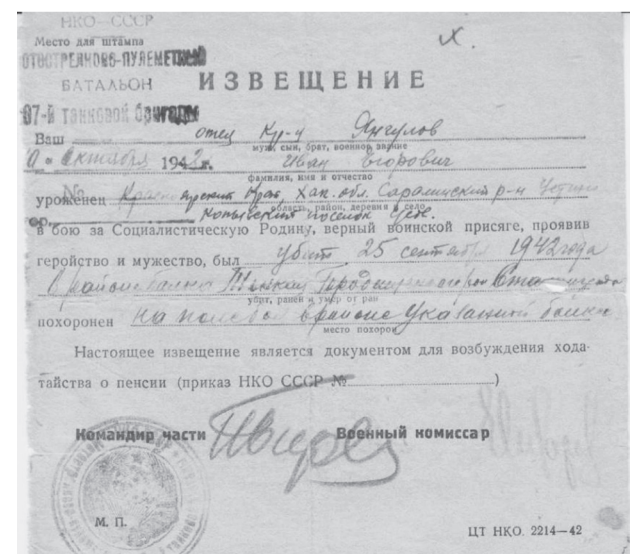 НКО—СССР
Место для штампа
МОТОСТРЕЛКОВО-ПУЛЕМЕТНЫЙ
БАТАЛЬОН
ИЗВЕЩЕНИЕ
07-й танковой бригады
Ваш отец Кр-ц Янгулов
муж, сын, брат, военное звание
октября 1942 г. Иван Егорович
фамилия, имя и отчество
уроженец Красноярский Край, Хак. обл. Саралинский р-н
область, район, деревня и село
посёлок
в бою за Социалистическую Родину, верный воинской присяге, проявив
геройство и мужество, был убит 25 сентября 1942 года
в районе балки
убит, ранен и умер от ран
похоронен на поле в районе указанной балки
место похорон
Настоящее извещение является документом для возбуждения хода-
тайства о пенсии (приказ НКО СССР № )
Командир части Военный комиссар
М. П.
ЦТ НКО. 2214—42